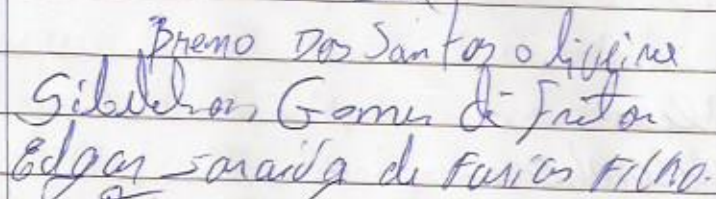 Breno Dos Santos oliveira
Gomes de Freitas
Edgar Saraiva de Farias Filho.